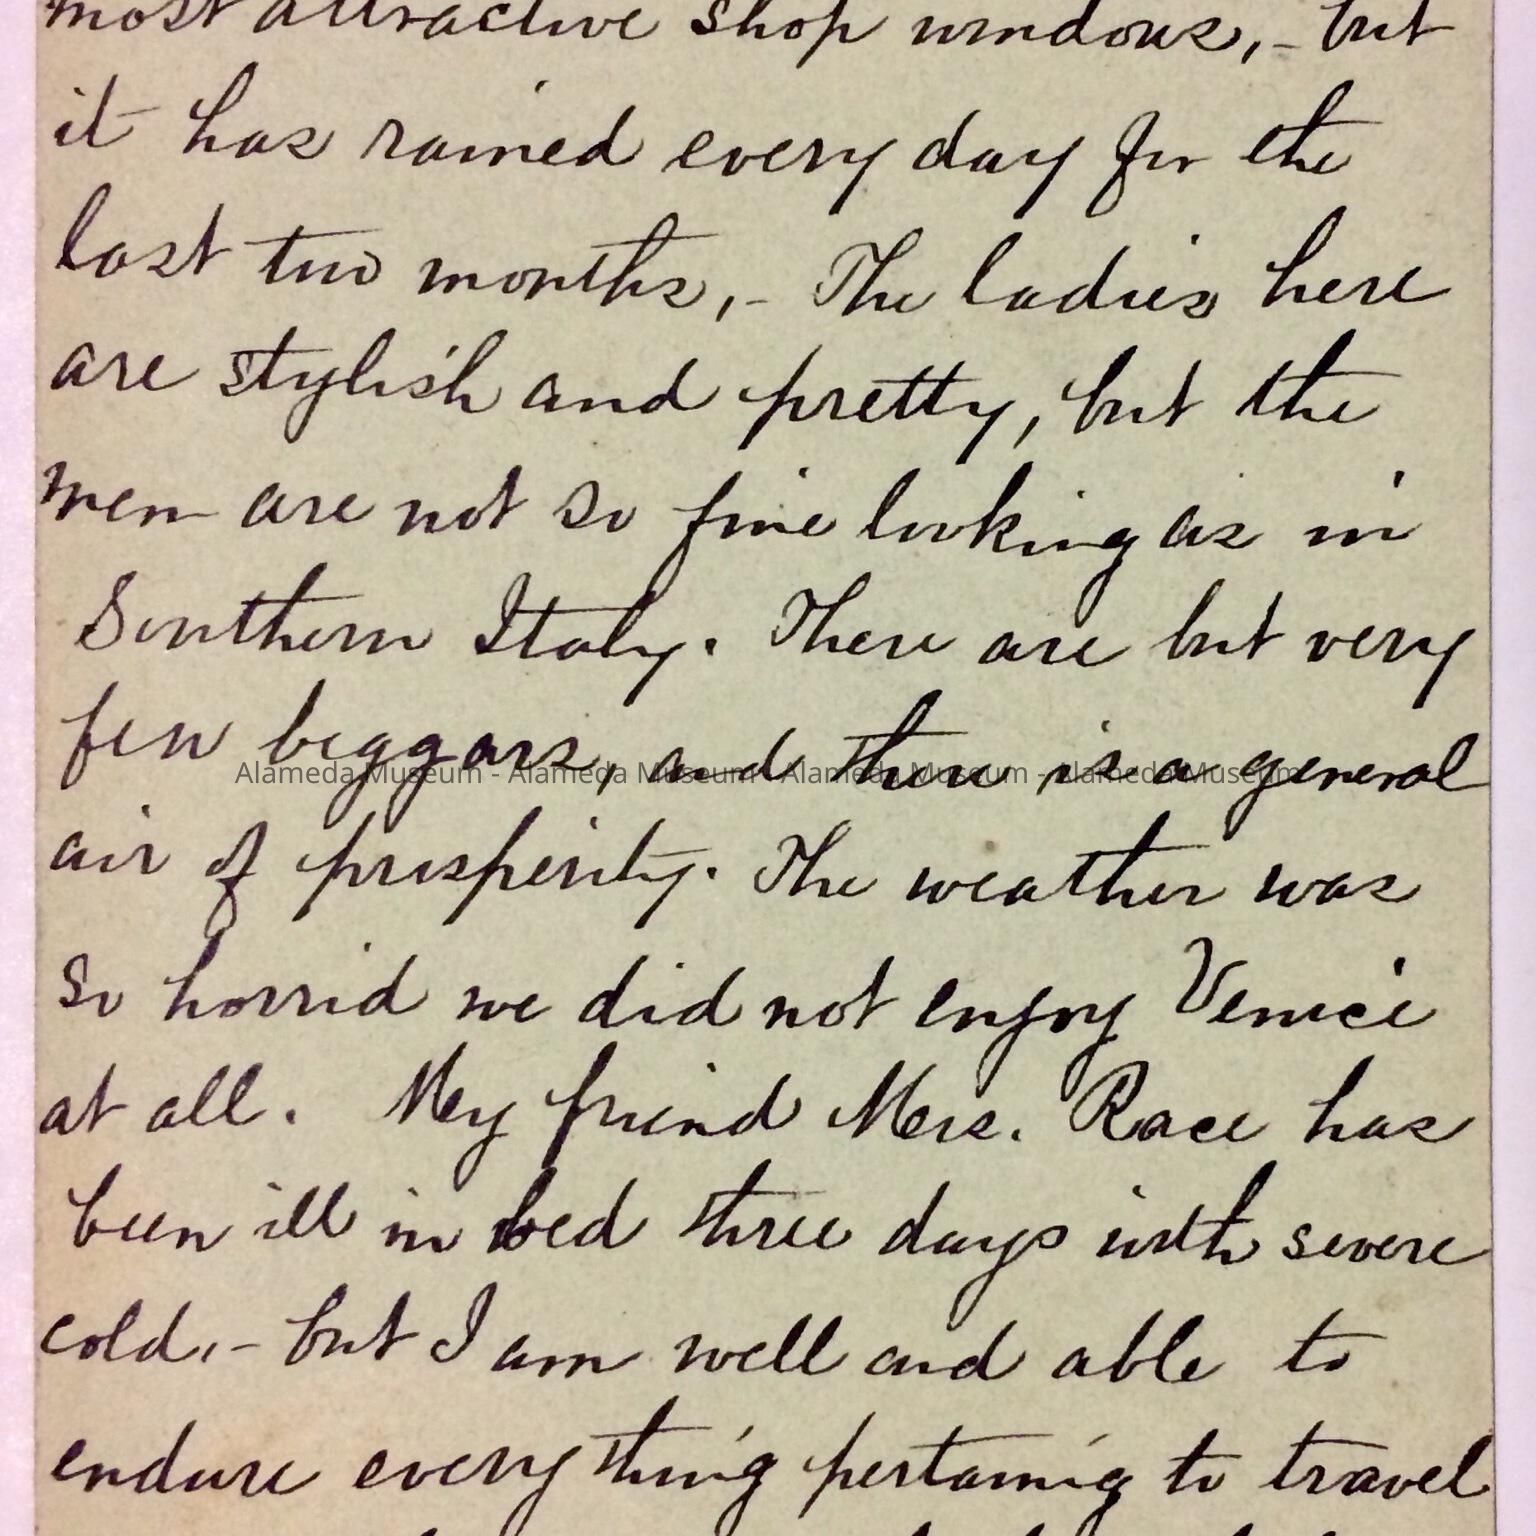 most attractive shop windows, - but
it has rained every day for the
last two months, - The ladies here
are stylish and pretty, but the
men are not so fine looking as in
Southern Italy. There are but very
few beggars, and there is a general
Alameda Museum - Alameda Museum - Alameda Museum - Alameda Museum
air of prosperity. The weather was
so horrid we did not enjoy Venice
at all. My friend Mrs. Race has
been ill in bed three days with severe
cold, - but I am well and able to
endure everything pertaining to travel